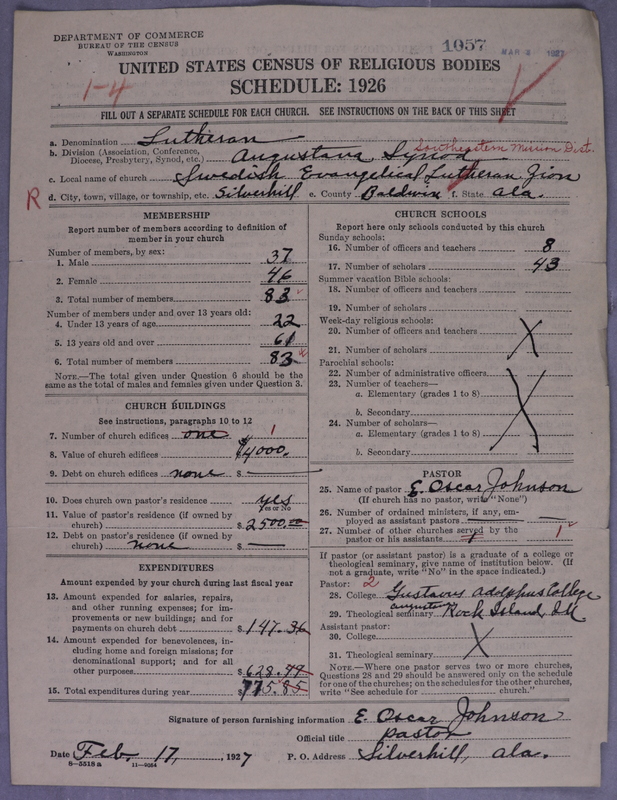 DEPARTMENT OF COMMERCE
BUREAU OF THE CENSUS
WASHINGTON
1057
MAR 2 1927
UNITED STATES CENSUS OF RELIGIOUS BODIES
1-4
SCHEDULE: 1926
FILL OUT A SEPARATE SCHEDULE FOR EACH CHURCH. SEE INSTRUCTIONS ON THE BACK OF THIS SHEET
a. Denomination Lutheran
b. Division (Association, Conference, Diocese, Presbytery, Synod, etc.) Augustana Synod Southeastern Mission Dist.
c. Local name of church Swedish Evangelical Lutheran Zion
R d. City, town, village, or township, etc. Silverhill e. County Baldwin f. State Ala.
MEMBERSHIP
Report number of members according to definition of
member in your church
Number of members, by sex:
1. Male 37
2. Female 46
3. Total number of members 83
Number of members under and over 13 years old:
4. Under 13 years of age 22
5. 13 years old and over 61
6. Total number of members 83
NOTE.—The total given under Question 6 should be the
same as the total of males and females given under Question 3.
CHURCH BUILDINGS
See instructions, paragraphs 10 to 12
7. Number of church edifices one 1
8. Value of church edifices $4000.
9. Debt on church edifices none $ —
10. Does church own pastor's residence yes
Yes or No
11. Value of pastor's residence (if owned by
church) $ 2500.00
12. Debt on pastor's residence (if owned by
church) none $ —
EXPENDITURES
Amount expended by your church during last fiscal year
13. Amount expended for salaries, repairs,
and other running expenses; for im-
provements or new buildings; and for
payments on church debt $ 147.36
14. Amount expended for benevolences, in-
cluding home and foreign missions; for
denominational support; and for all
other purposes $ 628.49
15. Total expenditures during year $ 775.85
CHURCH SCHOOLS
Report here only schools conducted by this church
Sunday schools:
16. Number of officers and teachers 8
17. Number of scholars 43
Summer vacation Bible schools:
18. Number of officers and teachers
19. Number of scholars
Week-day religious schools:
20. Number of officers and teachers
21. Number of scholars
Parochial schools:
22. Number of administrative officers
23. Number of teachers—
a. Elementary (grades 1 to 8)
b. Secondary
24. Number of scholars—
a. Elementary (grades 1 to 8)
b. Secondary
PASTOR
25. Name of pastor E. Oscar Johnson
(If church has no pastor, write "None")
26. Number of ordained ministers, if any, em-
ployed as assistant pastors —
27. Number of other churches served by the
pastor or his assistants 1
If pastor (or assistant pastor) is a graduate of a college or
theological seminary, give name of institution below. (If
not a graduate, write "No" in the space indicated.)
Pastor: 2
28. College Gustavus Adolphus College
29. Theological seminary Augustana Rock Island, Ill
Assistant pastor:
30. College
31. Theological seminary
NOTE.—Where one pastor serves two or more churches,
Questions 28 and 29 should be answered only on the schedule
for one of the churches; on the schedules for the other churches,
write "See schedule for church."
Signature of person furnishing information E. Oscar Johnson
Official title pastor
Date Feb. 17, 1927 P. O. Address Silverhill, Ala.
8—5518 a 11—9054